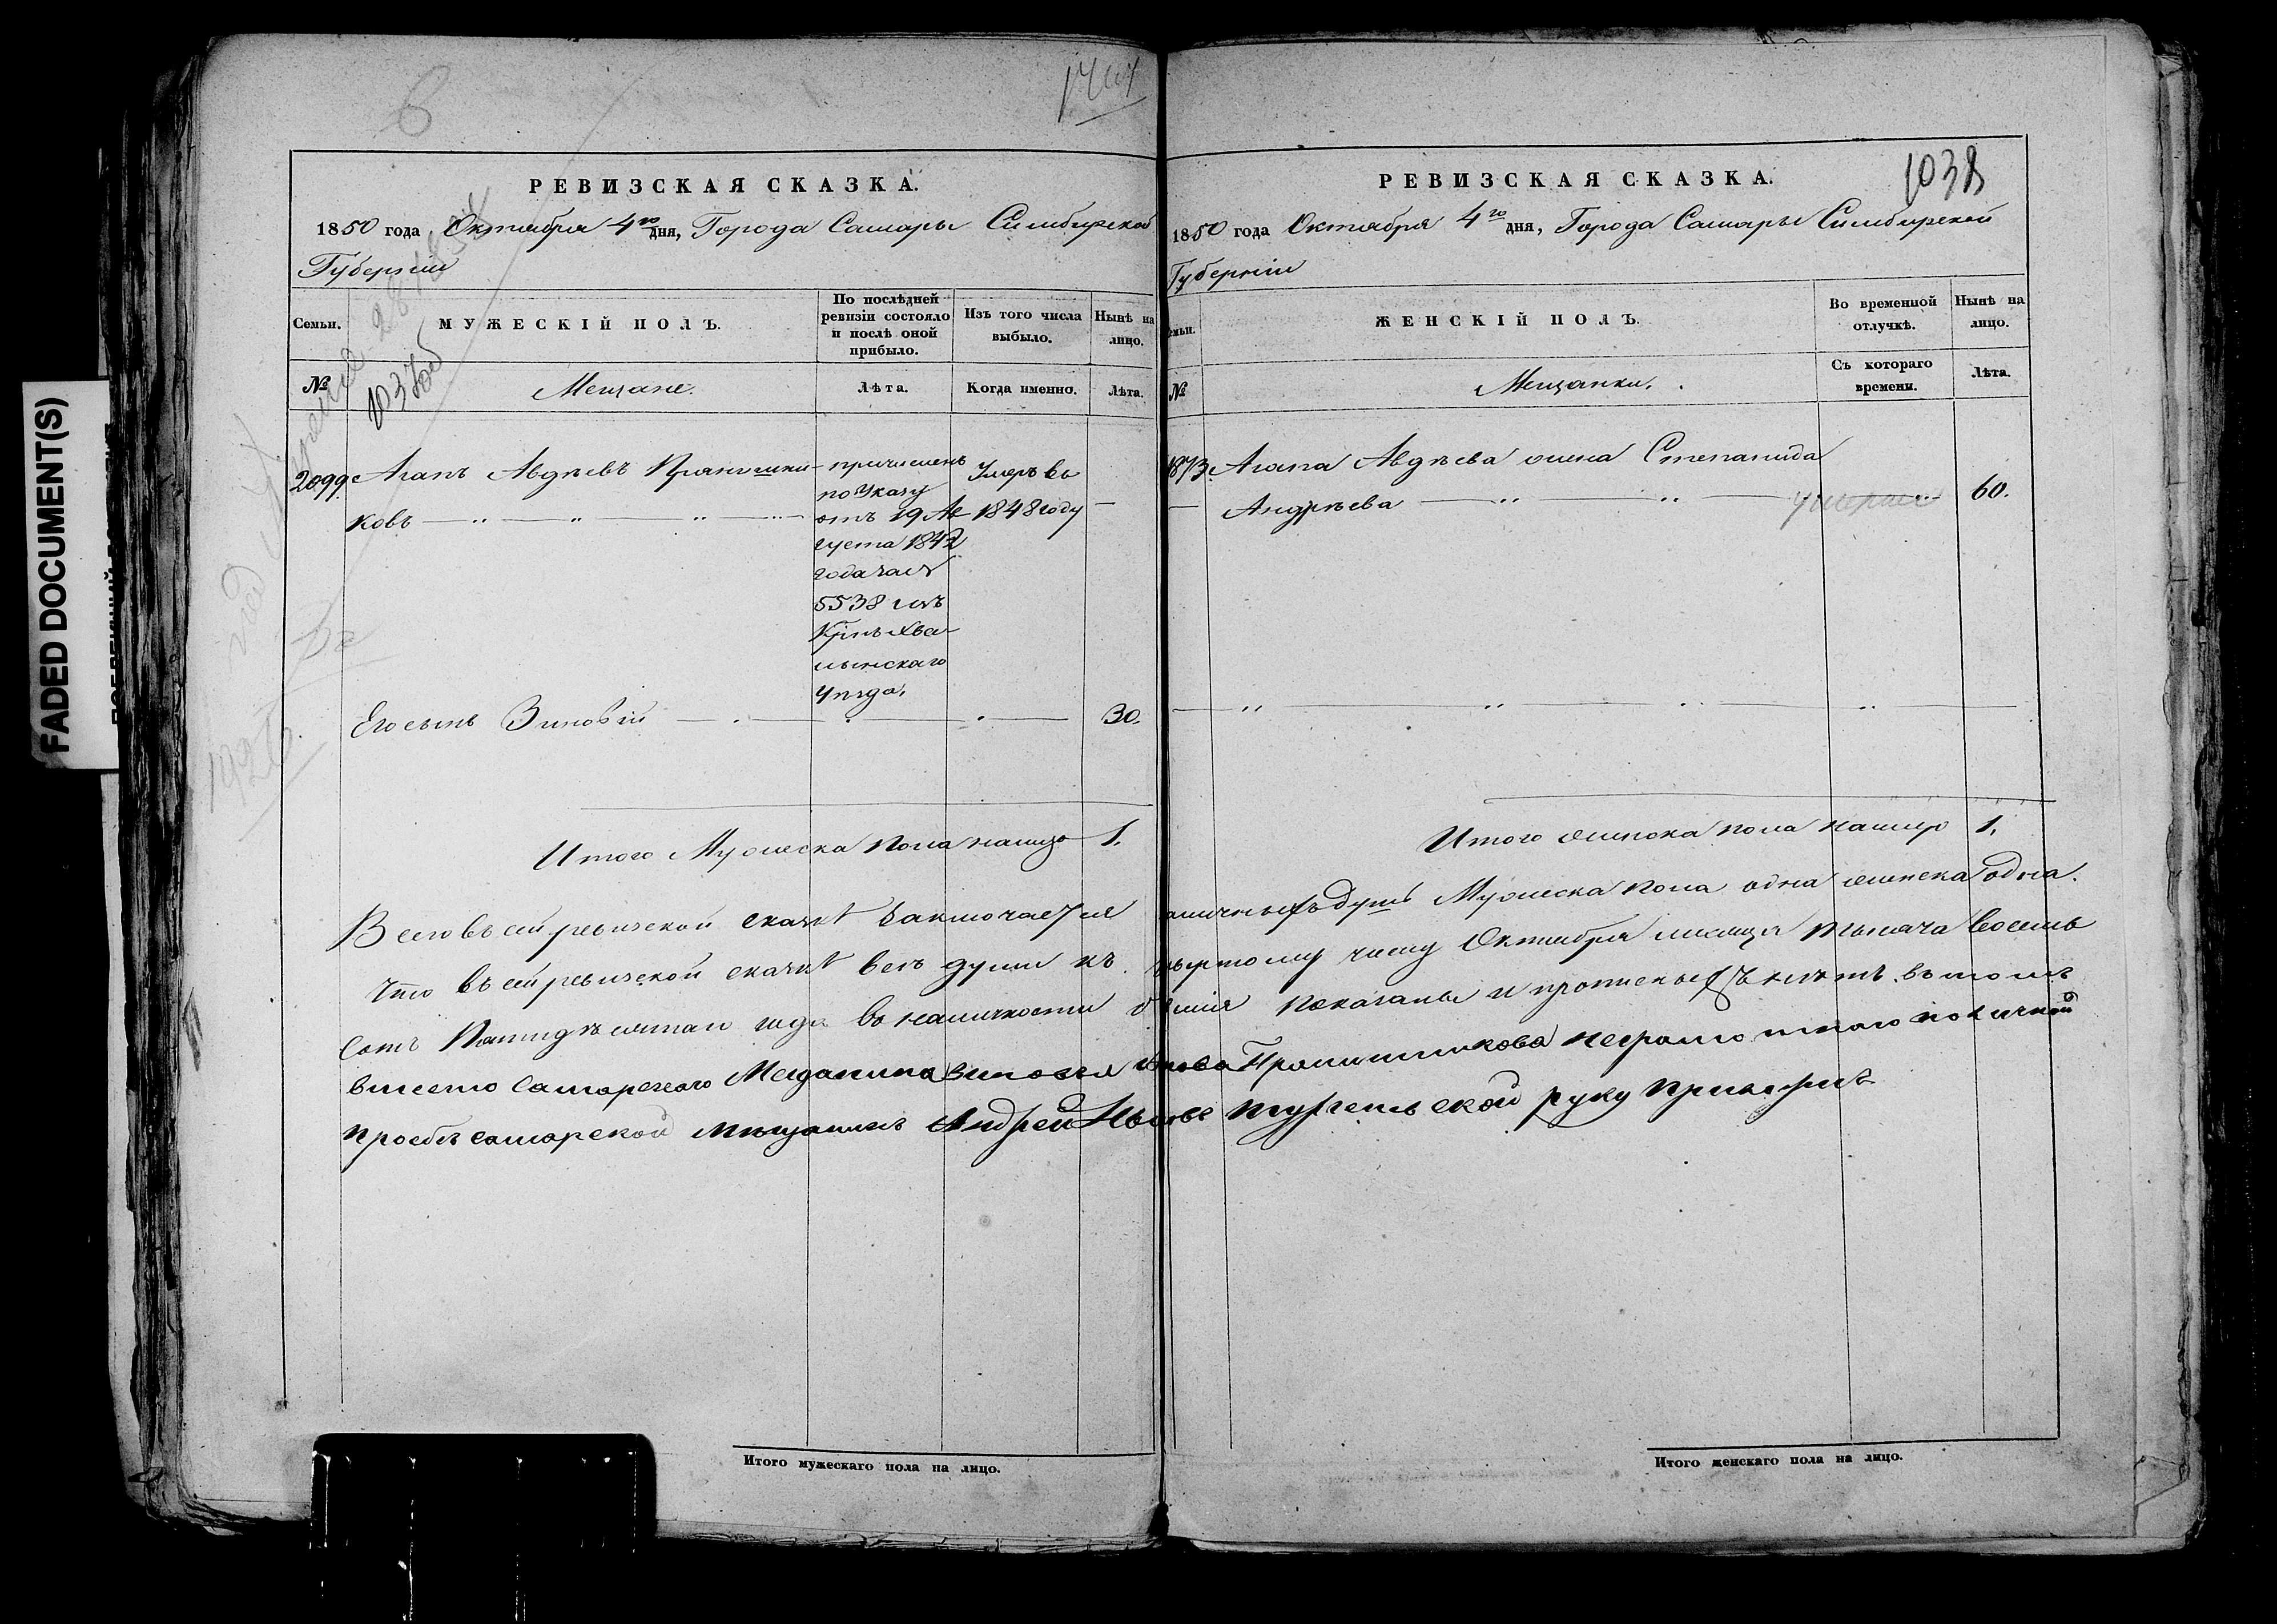 FADED DOCUMENT(S)
РЕВИЗСКАЯ СКАЗКА.
1850 года Октября 4го дня, Города Самары Симбирской
Губерніи
Семьи.
МУЖЕСКІЙ ПОЛЪ.
По послѣдней
ревизіи состояло
и послѣ оной
прибыло.
Изъ того числа
выбыло.
Нынѣ на
лицо.
№
Мещане.
Лѣта.
Когда именно.
Лѣта.
2099.
Агапъ Авдѣевъ Прянишни-
ковъ
причисленъ
по Указу
отъ 19 Ав-
густа 1842
года за №
5538 изъ
Крнъ Хва-
лынскаго
Уѣзда.
Умеръ въ
1848 году
—
Его сынъ Зиновій
30.
Итого Мужеска пола налицо 1.
Итого мужескаго пола на лицо.
1038
РЕВИЗСКАЯ СКАЗКА.
1850 года Октября 4го дня, Города Самары Симбирской
Губерніи
ЖЕНСКІЙ ПОЛЪ.
Во временной
отлучкѣ.
Нынѣ на
лицо.
№
Мещанки.
Съ котораго
времени.
Лѣта.
1873.
Агапа Авдѣева жена Степанида
Андрѣева
умерла
60.
Итого женска пола налицо 1.
Всего въ сей ревизской сказкѣ заключается наличныхъ душъ Мужеска пола одна женска одна.
Что въ сей ревизской сказкѣ всѣ души къ четвертому числу Октября мѣсяца тысяча восемь
сотъ Пятидѣсятаго года въ наличности бывшія показаны и прописныхъ нѣтъ. въ томъ
вместо Самарскаго Мещанина Зиновья Прянишникова неграмотнаго по личной
прозбѣ самарской мещанинъ Андрей руку приложилъ
Итого женскаго пола на лицо.